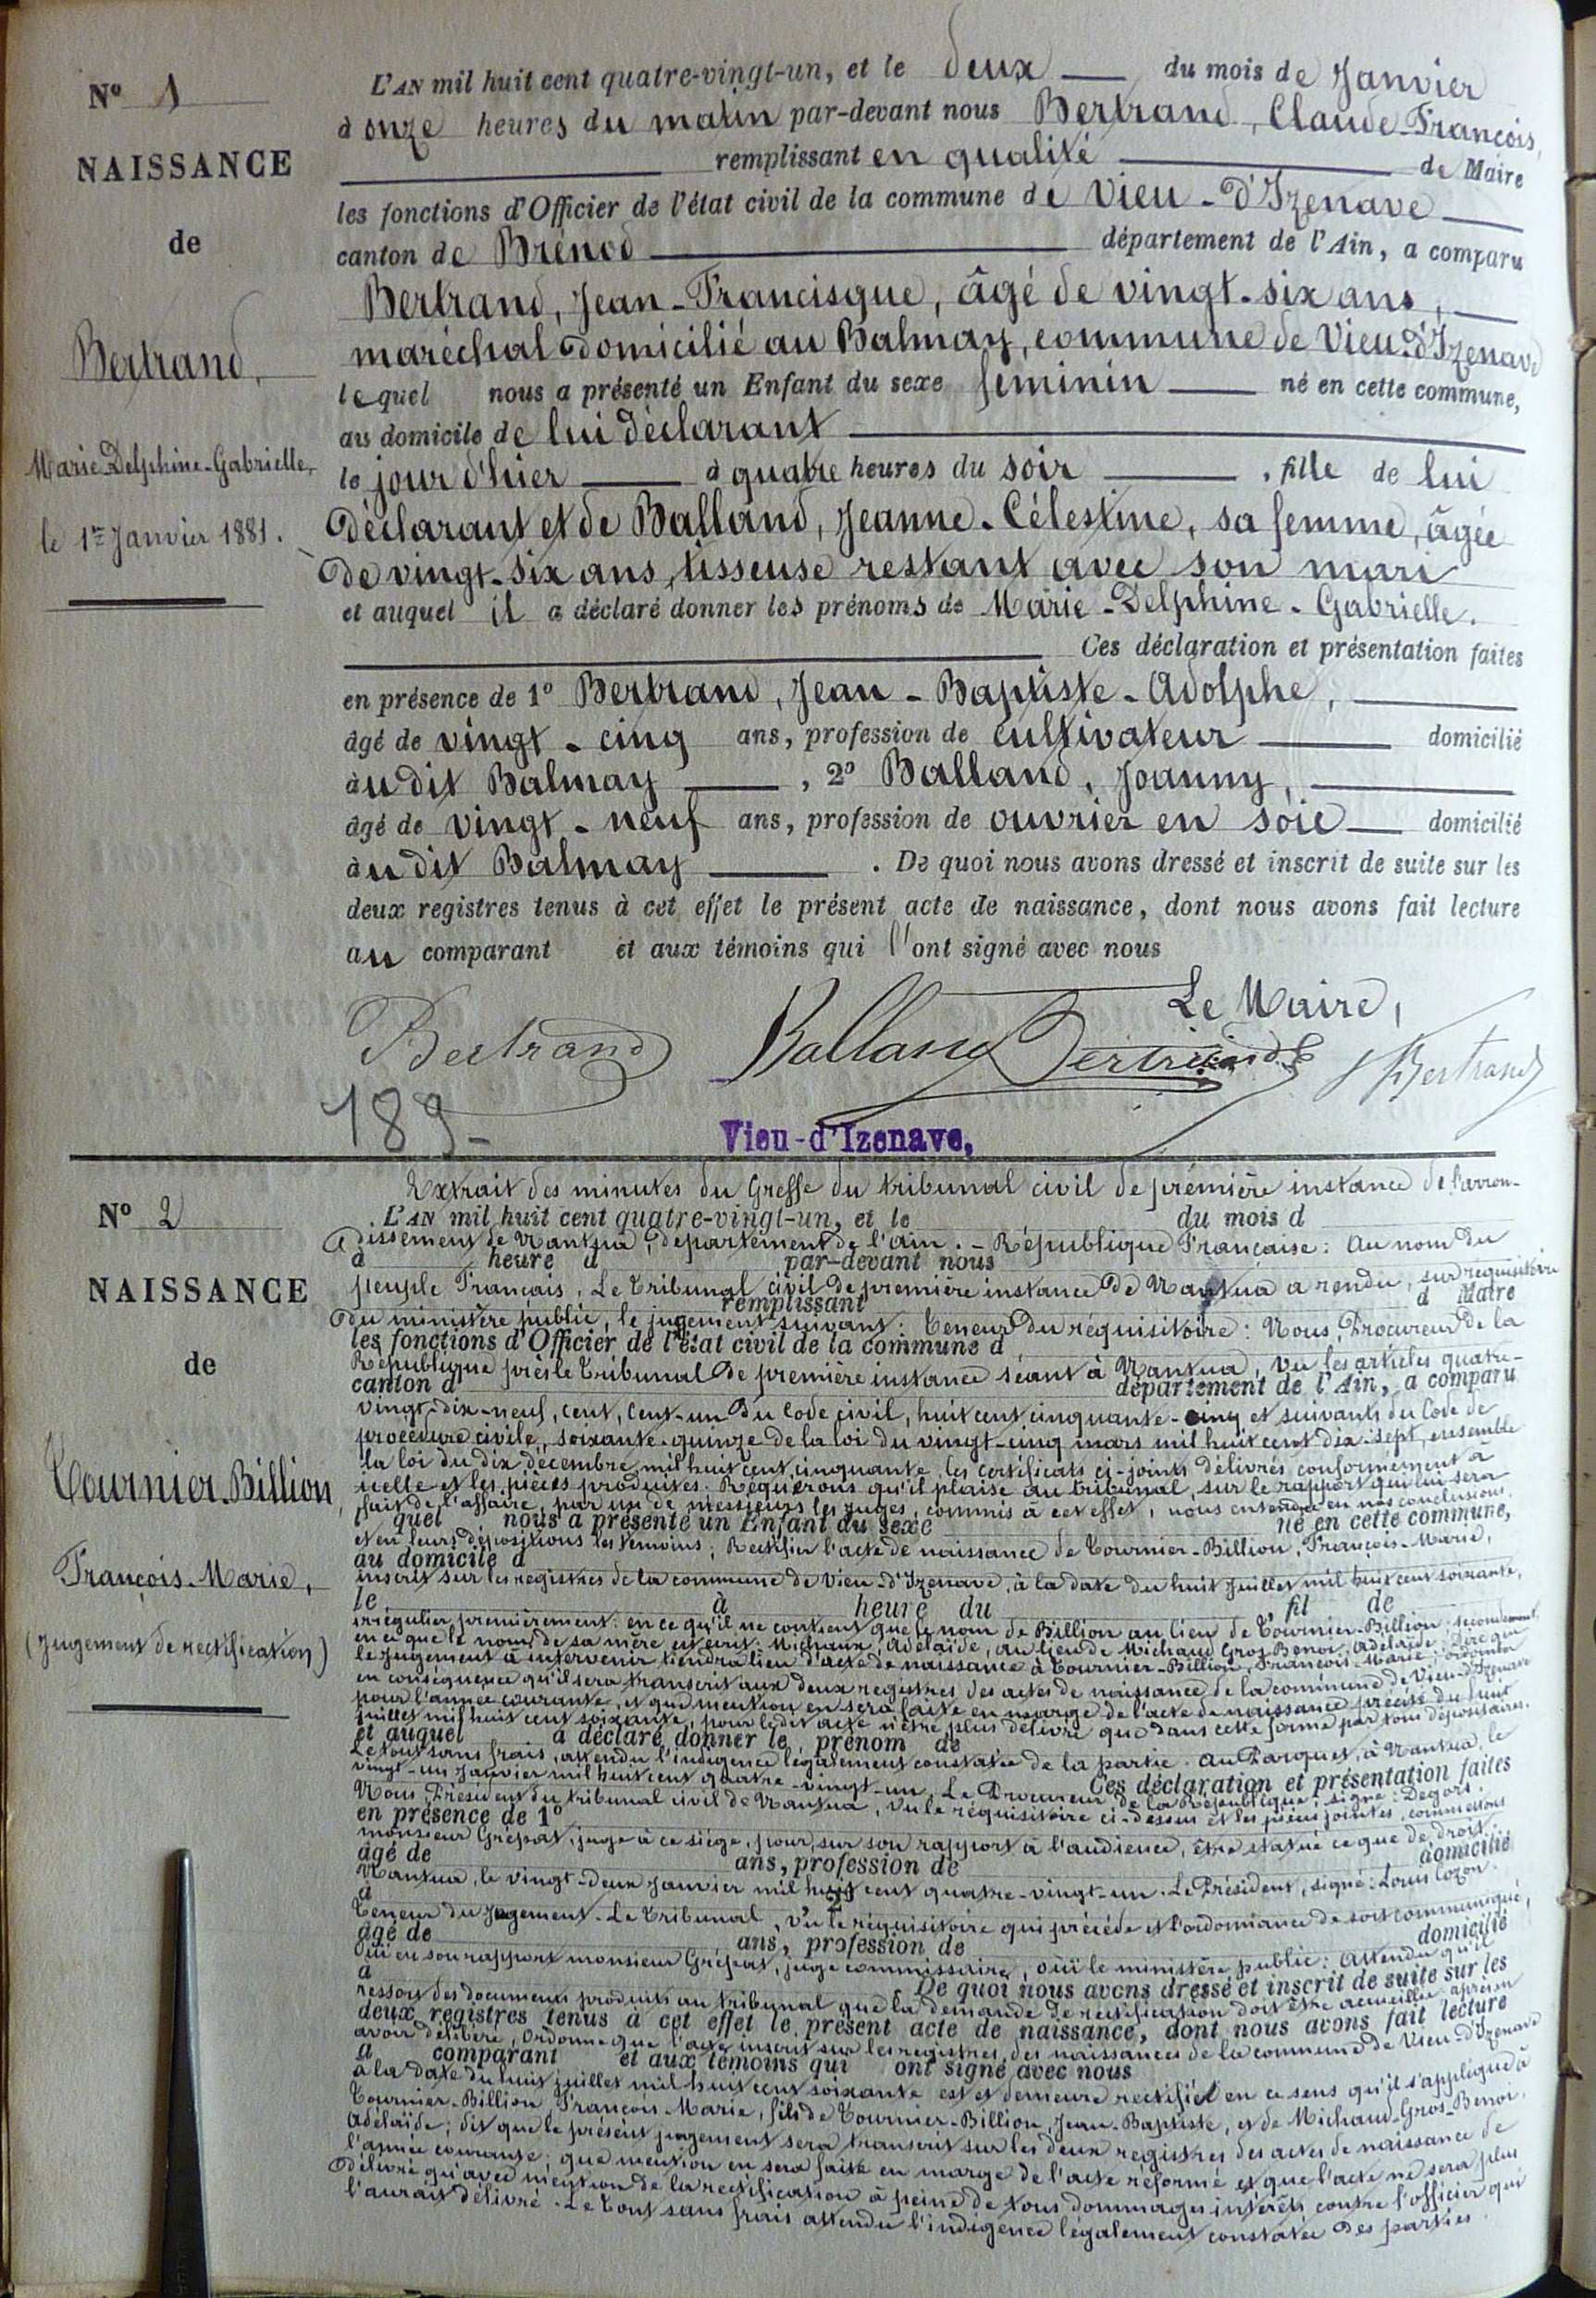 N° 1
NAISSANCE
de
Bertrand,
Marie-Delphine-Gabrielle,
le 1er Janvier 1881.
L'AN mil huit cent quatre-vingt-un, et le deux du mois de Janvier
à onze heures du matin par-devant nous Bertrand, Claude-François,
remplissant en qualité de Maire
les fonctions d'Officier de l'état civil de la commune de Vieu-d'Izenave
canton de Brénod département de l'Ain, a comparu
Bertrand, Jean-Francisque, âgé de vingt-six ans,
maréchal domicilié au Balmay, commune de Vieu-d'Izenave
lequel nous a présenté un Enfant du sexe féminin né en cette commune,
au domicile de lui déclarant
le jour d'hier à quatre heures du soir, fille de lui
déclarant et de Balland, Jeanne-Célestine, sa femme, âgée
de vingt-six ans, tisseuse restant avec son mari
et auquel il a déclaré donner les prénoms de Marie-Delphine-Gabrielle.
Ces déclaration et présentation faites
en présence de 1° Bertrand, Jean-Baptiste-Adolphe,
âgé de vingt-cinq ans, profession de cultivateur domicilié
audit Balmay, 2° Balland, Joanny,
âgé de vingt-neuf ans, profession de ouvrier en soie domicilié
audit Balmay. De quoi nous avons dressé et inscrit de suite sur les
deux registres tenus à cet effet le présent acte de naissance, dont nous avons fait lecture
au comparant et aux témoins qui l'ont signé avec nous
Le Maire,
Bertrand Balland Bertrand Bertrand
189-
Vieu-d'Izenave,
N° 2
NAISSANCE
de
Tournier-Billion,
François-Marie,
(Jugement de rectification)
Extrait des minutes du Greffe du tribunal civil de première instance de l'arron-
L'AN mil huit cent quatre-vingt-un, et le du mois d
dissement de Nantua, département de l'Ain. - République Française: Au nom du
à heure d par-devant nous
peuple Français, Le tribunal civil de première instance de Nantua a rendu, sur réquisitoire
remplissant d Maire
du ministère public, le jugement suivant: Teneur du réquisitoire: Nous, Procureur de la
les fonctions d'Officier de l'état civil de la commune d
République près le tribunal de première instance séant à Nantua, vu les articles quatre-
canton d département de l'Ain, a comparu
vingt-dix-neuf, cent, cent-un du Code civil, huit cent cinquante-cinq et suivants du Code de
procédure civile, soixante-quinze de la loi du vingt-cinq mars mil huit cent dix-sept, ensemble
la loi du dix décembre mil huit cent cinquante, les certificats ci-joints délivrés conformément à
icelle et les pièces produites. Requérons qu'il plaise au tribunal, sur le rapport qui lui sera
fait de l'affaire, par un de messieurs les juges, commis à cet effet, nous entendre en nos conclusions,
l quel nous a présenté un Enfant du sexe né en cette commune,
et en leurs dépositions les témoins; Rectifier l'acte de naissance de Tournier-Billion, François-Marie,
au domicile d
inscrit sur les registres de la commune de Vieu-d'Izenave, à la date du huit Juillet mil huit cent soixante,
le à heure du fil de
irrégulier, premièrement: en ce qu'il ne contient que le nom de Billion au lieu de Tournier-Billion; secondement,
en ce que le nom de sa mère est écrit: Michaux, Adélaïde, au lieu de Michaud-Gros-Benoi, Adélaïde; Dire que
le jugement à intervenir tiendra lieu d'acte de naissance à Tournier-Billion, François-Marie; ordonner
en conséquence qu'il sera transcrit aux deux registres des actes de naissance de la commune de Vieu-d'Izenave
pour l'année courante, et que mention en sera faite en marge de l'acte de naissance précité du huit
juillet mil huit cent soixante, pour ledit acte n'être plus délivré que dans cette forme par tous dépositaires.
et auquel a déclaré donner le prénom de
Le tout sans frais, attendu l'indigence légalement constatée de la partie. Au Parquet, à Nantua, le
vingt-un Janvier mil huit cent quatre-vingt-un. Le Procureur de la République, signé: Degors.
Ces déclaration et présentation faites
Nous, Président du tribunal civil de Nantua, Vu le réquisitoire ci-dessus et les pièces jointes, commettons
en présence de 1°
monsieur Grépat, juge à ce siége, pour, sur son rapport à l'audience, être statué ce que de droit.
âgé de ans, profession de domicilié
Nantua, le vingt-deux Janvier mil huit cent quatre-vingt-un. Le Président, signé: Louis Cozon.
à
Teneur du Jugement. Le tribunal, Vu le réquisitoire qui précède et l'ordonnance de soit communiqué,
âgé de ans, profession de domicilié
Ouï en son rapport monsieur Grépat, juge commissaire, ouï le ministère public: Attendu qu'il
à De quoi nous avons dressé et inscrit de suite sur les
ressort des documents produits au tribunal que la demande de rectification doit être accueillie après en
deux registres tenus à cet effet le présent acte de naissance, dont nous avons fait lecture
avoir délibéré, Ordonne que l'acte inscrit sur les registres des naissances de la commune de Vieu-d'Izenave
a comparant et aux témoins qui ont signé avec nous
à la date du huit juillet mil huit cent soixante est et demeure rectifié en ce sens qu'il s'applique à
Tournier-Billion, François-Marie, fils de Tournier-Billion, Jean-Baptiste, et de Michaud-Gros-Benoi,
Adélaïde; dit que le présent jugement sera transcrit sur les deux registres des actes de naissance de
l'année courante; que mention en sera faite en marge de l'acte réformé et que l'acte ne sera plus
délivré qu'avec mention de la rectification à peine de tous dommages intérêts contre l'officier qui
l'aurait délivré. Le tout sans frais attendu l'indigence légalement constatée des parties.